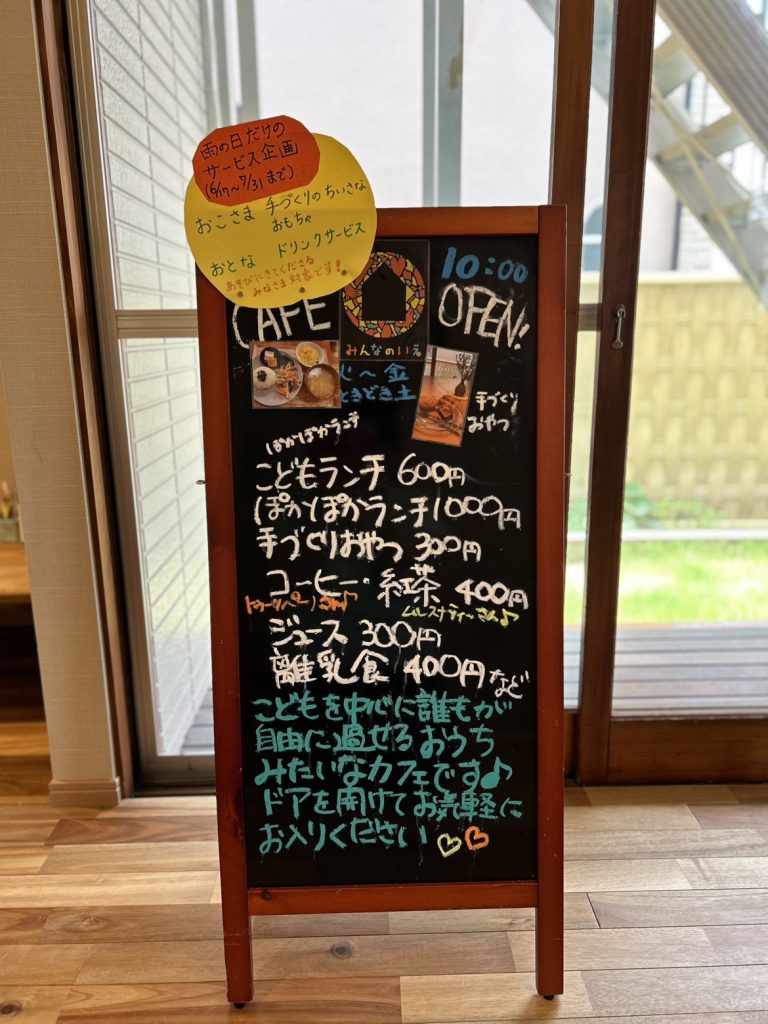 雨の日だけの
サービス企画
(6/17～7/31まで)
おこさま 手づくりのちいさな
おもちゃ
おとな ドリンクサービス
あそびにきてくださる
みなさま対象です!
10:00
CAFE OPEN!
みんなのいえ
～金
ときどき土
手づくり
おやつ
ぽかぽかランチ
こどもランチ 600円
ぽかぽかランチ1000円
手づくりおやつ 300円
コーヒー・紅茶 400円
さん♪
ムレスナティーさん♪
ジュース 300円
離乳食 400円など
こどもを中心に誰もが
自由に過せるおうち
みたいなカフェです♪
ドアを開けてお気軽に
お入りください